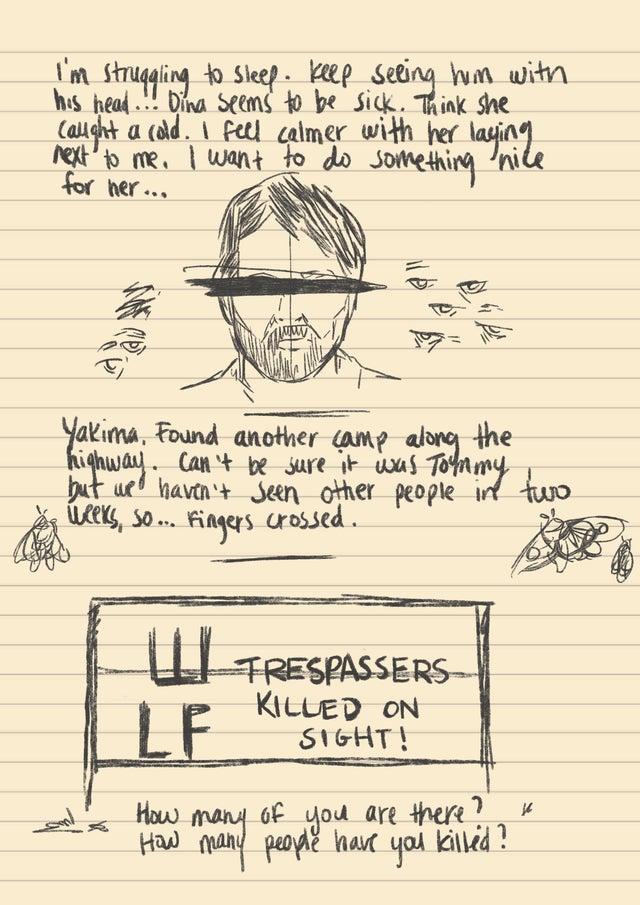 I'm struggling to sleep. Keep seeing him with
his head... Dina seems to be sick. Think she
caught a cold. I feel calmer with her laying
next to me. I want to do something nice
for her...
Yakima. Found another camp along the
highway. Can't be sure it was Tommy
but we haven't seen other people in two
weeks, so... Fingers crossed.
W TRESPASSERS
LF KILLED ON
SIGHT!
How many of you are there?
How many people have you killed?